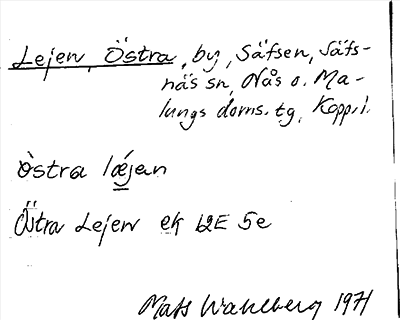 Lejen, Östra, by, Säfsen, Säfs-
näs sn, Nås o. Ma-
lungs doms. tg, Kopp. l.
östra lǽjan
Östra Lejen ek 12E 5e
Mats Wahlberg 1971